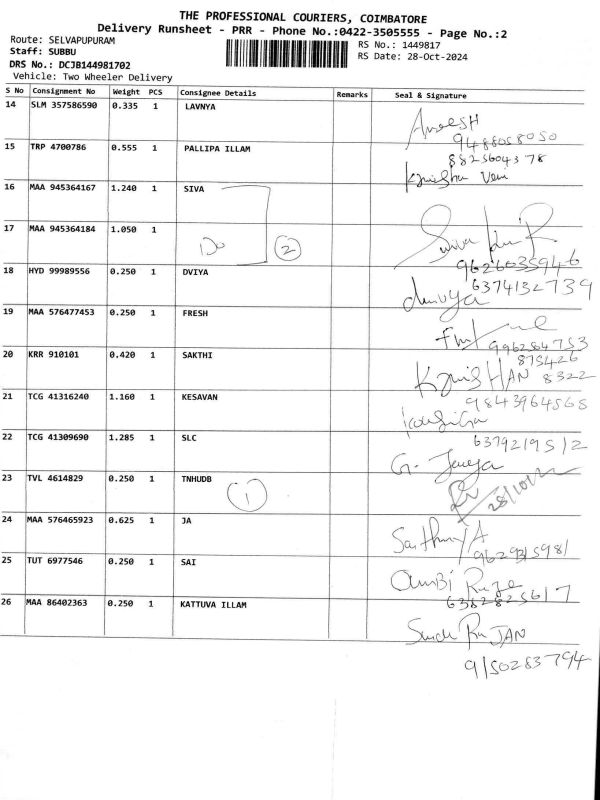 THE PROFESSIONAL COURIERS, COIMBATORE
Delivery Runsheet - PRR - Phone No.:0422-3505555 - Page No.:2
Route: SELVAPUPURAM
RS No.: 1449817
Staff: SUBBU
RS Date: 28-Oct-2024
DRS No.: DCJB144981702
Vehicle: Two Wheeler Delivery
S No Consignment No Weight PCS Consignee Details Remarks Seal & Signature
14 SLM 357586590 0.335 1 LAVNYA
9488058050
15 TRP 4700786 0.555 1 PALLIPA ILLAM
8825604378
16 MAA 945364167 1.240 1 SIVA
17 MAA 945364184 1.050 1
Do 2
9626035946
18 HYD 99989556 0.250 1 DVIYA
6374132739
19 MAA 576477453 0.250 1 FRESH
996284753
20 KRR 910101 0.420 1 SAKTHI
875426
8322
21 TCG 41316240 1.160 1 KESAVAN
9843964565
22 TCG 41309690 1.285 1 SLC
6379219512
23 TVL 4614829 0.250 1 TNHUDB
1
24 MAA 576465923 0.625 1 JA
25 TUT 6977546 0.250 1 SAI
26 MAA 86402363 0.250 1 KATTUVA ILLAM
9150283794